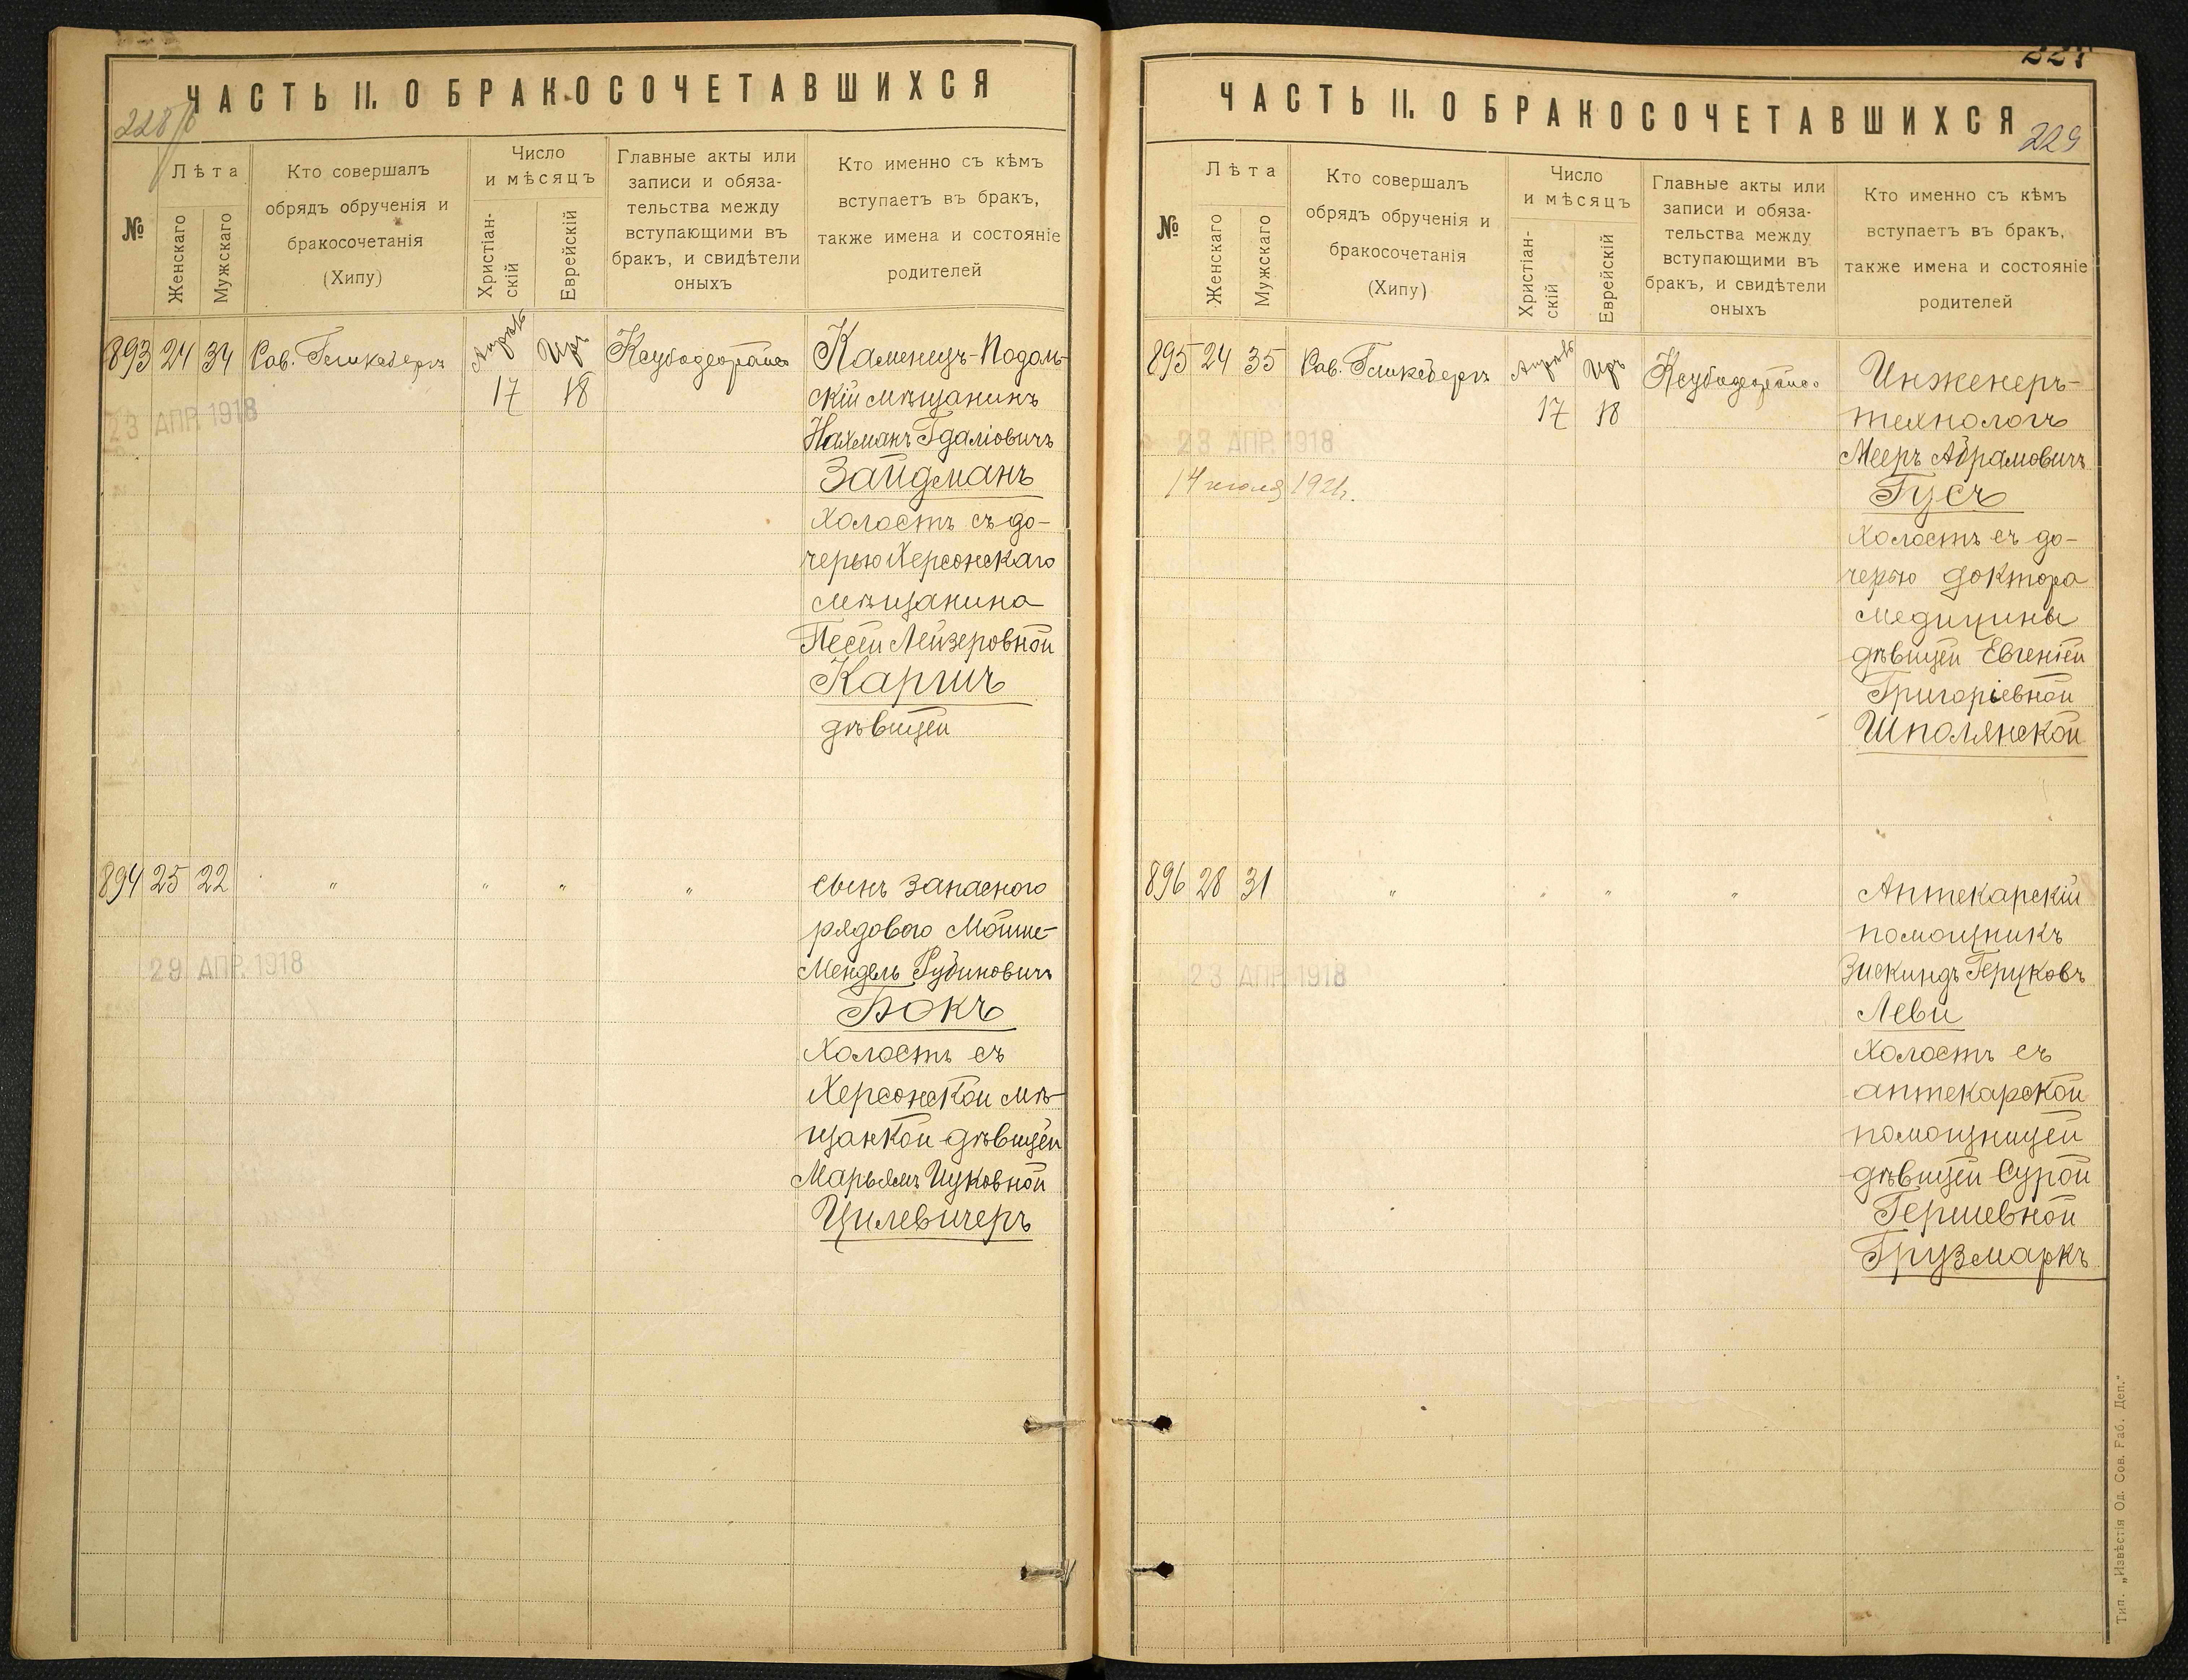 ЧАСТЬ II. О БРАКОСОЧЕТАВШИХСЯ
228
№
Лѣта
Женскаго
Мужскаго
Кто совершалъ
обрядъ обрученія и
бракосочетанія
(Хипу)
Число
и мѣсяцъ
Христіан-
скій
Еврейскій
Главные акты или
записи и обяза-
тельства между
вступающими въ
бракъ, и свидѣтели
оныхъ
Кто именно съ кѣмъ
вступаетъ въ бракъ,
также имена и состояніе
родителей
893 24 34 Рав. Гликсбергъ
Апрѣль
17
Иръ
18
23 АПР. 1918
Каменецъ-Подоль-
скій мѣщанинъ
Нахманъ Гдаліовичъ
Зайдманъ
холостъ съ до-
черью Херсонскаго
мѣщанина
Песей Лейзеровной
Каргичъ
дѣвицей
894 25 22 " " " "
29 АПР. 1918
Сынъ запасного
рядового Мойше-
Мендель Рубиновичъ
Бокъ
холостъ съ
Херсонской мѣ-
щанкой дѣвицей
Марьямъ Ицковной
Цилевичеръ
ЧАСТЬ II. О БРАКОСОЧЕТАВШИХСЯ
229
№
Лѣта
Женскаго
Мужскаго
Кто совершалъ
обрядъ обрученія и
бракосочетанія
(Хипу)
Число
и мѣсяцъ
Христіан-
скій
Еврейскій
Главные акты или
записи и обяза-
тельства между
вступающими въ
бракъ, и свидѣтели
оныхъ
Кто именно съ кѣмъ
вступаетъ въ бракъ,
также имена и состояніе
родителей
895 24 35 Рав. Гликсбергъ
Апрѣль
17
Иръ
18
23 АПР. 1918
14 июля 1921г.
Инженеръ-
технологъ
Мееръ Абрамовичъ
Гусъ
холостъ съ до-
черью доктора
медицины
дѣвицей Евгеніей
Григоріевной
Шполянской
896 28 31 " " " "
23 АПР. 1918
Аптекарскій
помощникъ
Зискиндъ Герцковъ
Леви
холостъ съ
аптекарской
помощницей
дѣвицей Сурой
Гершевной
Грузмаркъ
Тип. „Извѣстія Од. Сов. Раб. Деп."